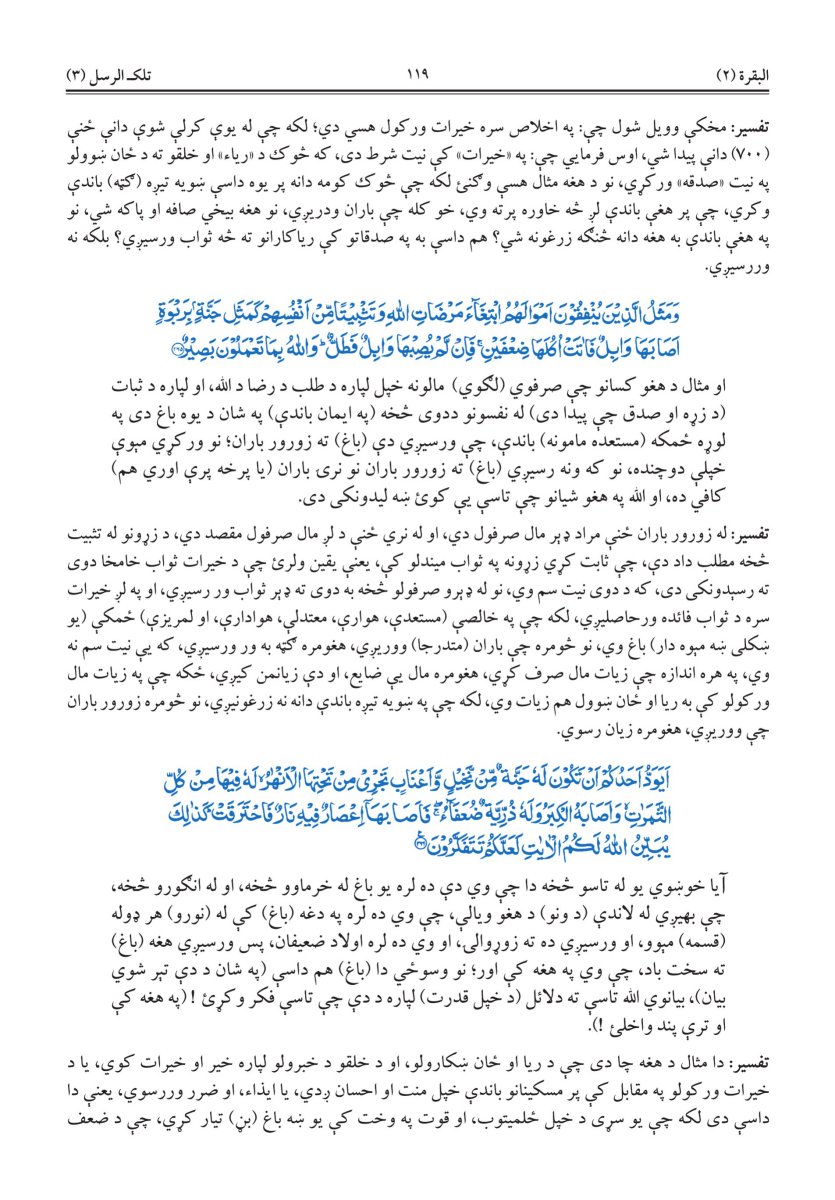 البقرة (۲) ۱۱۹ تلکـ الرسل (۳)
تفسير: مخکې وويل شول چې: په اخلاص سره خيرات ورکول هسې دي؛ لکه چې له يوې کرلې شوې دانې ځنې
(۷۰۰) دانې پيدا شي، اوس فرمايي چې: په «خيرات» کې نيت شرط دی، که څوک د «رياء» او خلقو ته د ځان ښوولو
په نيت «صدقه» ورکړي، نو د هغه مثال هسې وګڼئ لکه چې څوک کومه دانه پر يوه داسې ښويه تيږه (ګټه) باندې
وکري، چې پر هغې باندې لږ څه خاوره پرته وي، خو کله چې باران ودريږي، نو هغه بيخي صافه او پاکه شي، نو
په هغې باندې به هغه دانه څنګه زرغونه شي؟ هم داسې به په صدقاتو کې رياکارانو ته څه ثواب ورسيږي؟ بلکه نه
وررسيږي.
وَمَثَلُ الَّذِيْنَ يُنْفِقُوْنَ اَمْوَالَهُمُ ابْتِغَآءَ مَرْضَاتِ اللهِ وَتَثْبِيْتًا مِّنْ اَنْفُسِهِمْ كَمَثَلِ جَنَّةٍۭ بِرَبْوَةٍ
اَصَابَهَا وَابِلٌ فَاٰتَتْ اُكُلَهَا ضِعْفَيْنِ ۚ فَاِنْ لَّمْ يُصِبْهَا وَابِلٌ فَطَلٌّ ؕ وَاللهُ بِمَا تَعْمَلُوْنَ بَصِيْرٌ ﴿۲۶۵﴾
او مثال د هغو کسانو چې صرفوي (لګوي) مالونه خپل لپاره د طلب د رضا د الله، او لپاره د ثبات
(د زړه او صدق چې پيدا دی) له نفسونو ددوی څخه (په ايمان باندې) په شان د يوه باغ دی په
لوړه ځمکه (مستعده مامونه) باندې، چې ورسيږي دې (باغ) ته زورور باران؛ نو ورکړي مېوې
خپلې دوچنده، نو که ونه رسيږي (باغ) ته زورور باران نو نرئ باران (يا پرخه پرې اوري هم)
کافي ده، او الله په هغو شيانو چې تاسې يې کوئ ښه ليدونکی دی.
تفسير: له زورور باران ځنې مراد ډېر مال صرفول دي، او له نري ځنې د لږ مال صرفول مقصد دي، د زړونو له تثبيت
څخه مطلب داد دې، چې ثابت کړي زړونه په ثواب ميندلو کې، يعنې يقين ولرئ چې د خيرات ثواب خامخا دوی
ته رسېدونکی دی، که د دوی نيت سم وي، نو له ډېرو صرفولو څخه به دوی ته ډېر ثواب ور رسيږي، او په لږ خيرات
سره د ثواب فائده ورحاصليږي، لکه چې په خالصې (مستعدې، هوارې، معتدلې، هوادارې، او لمريزې) ځمکې (يو
ښکلی ښه مېوه دار) باغ وي، نو څومره چې باران (متدرجا) ووريږي، هغومره ګټه به ور ورسيږي، که يې نيت سم نه
وي، په هره اندازه چې زيات مال صرف کړي، هغومره مال يې ضايع، او دې زيانمن کيږي، ځکه چې په زيات مال
ورکولو کې به ريا او ځان ښوول هم زيات وي، لکه چې په ښويه تيږه باندې دانه نه زرغونيږي، نو څومره زورور باران
چې ووريږي، هغومره زيان رسوي.
اَيَوَدُّ اَحَدُكُمْ اَنْ تَكُوْنَ لَهٗ جَنَّةٌ مِّنْ نَّخِيْلٍ وَّاَعْنَابٍ تَجْرِيْ مِنْ تَحْتِهَا الْاَنْهٰرُ ۙ لَهٗ فِيْهَا مِنْ كُلِّ
الثَّمَرٰتِ ۙ وَاَصَابَهُ الْكِبَرُ وَلَهٗ ذُرِّيَّةٌ ضُعَفَآءُ ۖ فَاَصَابَهَاۤ اِعْصَارٌ فِيْهِ نَارٌ فَاحْتَرَقَتْ ؕ كَذٰلِكَ
يُبَيِّنُ اللهُ لَكُمُ الْاٰيٰتِ لَعَلَّكُمْ تَتَفَكَّرُوْنَ ﴿۲۶۶﴾
آيا خوښوي يو له تاسو څخه دا چې وي دې ده لره يو باغ له خرماوو څخه، او له انګورو څخه،
چې بهيږي له لاندې (د ونو) د هغو ويالې، چې وي ده لره په دغه (باغ) کې له (نورو) هر ډوله
(قسمه) مېوو، او ورسيږي ده ته زوړوالی، او وي ده لره اولاد ضعيفان، پس ورسيږي هغه (باغ)
ته سخت باد، چې وي په هغه کې اور؛ نو وسوځي دا (باغ) هم داسې (په شان د دې تېر شوي
بيان)، بيانوي الله تاسې ته دلائل (د خپل قدرت) لپاره د دې چې تاسې فکر وکړئ ! (په هغه کې
او ترې پند واخلئ !).
تفسير: دا مثال د هغه چا دی چې د ريا او ځان ښکارولو، او د خلقو د خبرولو لپاره خير او خيرات کوي، يا د
خيرات ورکولو په مقابل کې پر مسکينانو باندې خپل منت او احسان ږدي، يا ايذاء، او ضرر وررسوي، يعنې دا
داسې دی لکه چې يو سړی د خپل ځلميتوب، او قوت په وخت کې يو ښه باغ (بڼ) تيار کړي، چې د ضعف